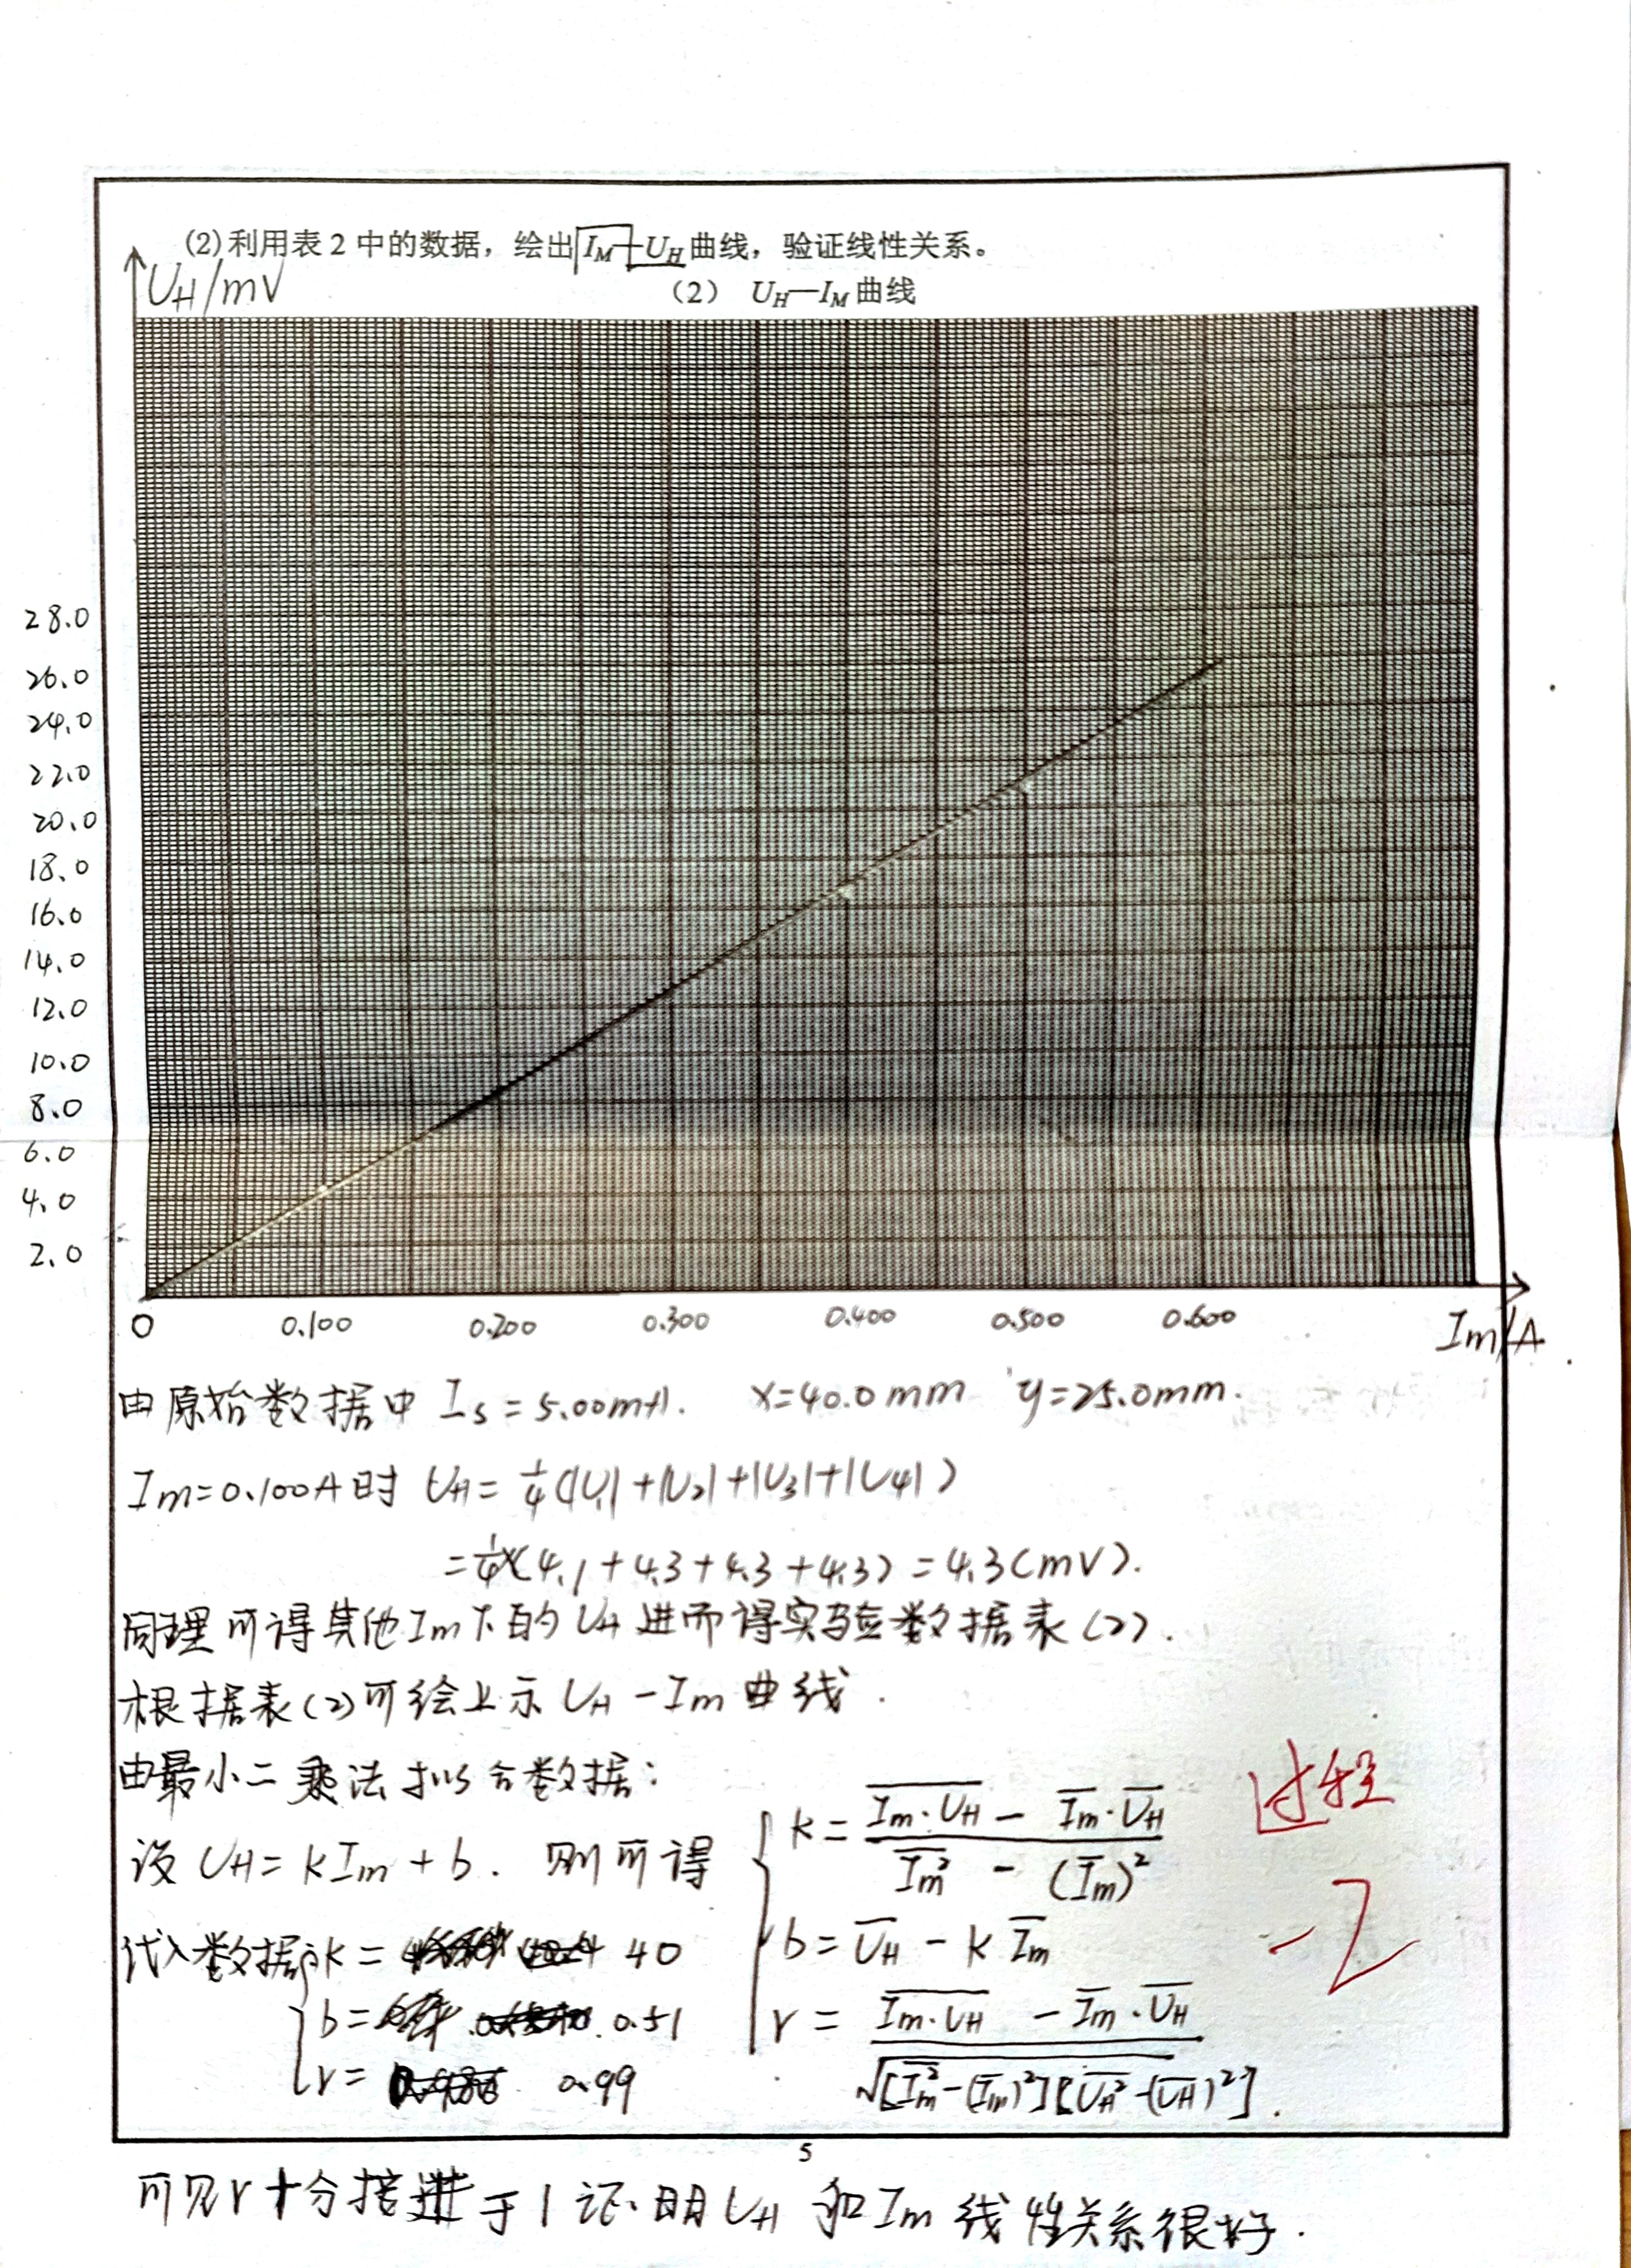 (2)利用表 2 中的数据，绘出 I_M—U_H 曲线，验证线性关系。
U_H/mV
（2） U_H—I_M 曲线
28.0
26.0
24.0
22.0
20.0
18.0
16.0
14.0
12.0
10.0
8.0
6.0
4.0
2.0
0 0.100 0.200 0.300 0.400 0.500 0.600
Im/A
由原始数据中 Is = 5.00mA. x=40.0mm y=25.0mm.
Im=0.100A时 U_H = 1/4(|U1|+|U2|+|U3|+|U4|)
=1/4×(4.1+4.3+4.3+4.3)=4.3(mV).
同理可得其他Im下的U_H进而得实验数据表(2).
根据表(2)可绘上示U_H-Im曲线.
由最小二乘法拟合数据:
设 U_H = kIm + b. 则可得
k = (\overline{Im·U_H} - \overline{Im}·\overline{U_H}) / (\overline{Im^2} - (\overline{Im})^2)
过程
-2
b = \overline{U_H} - k\overline{Im}
r = (\overline{Im·U_H} - \overline{Im}·\overline{U_H}) / √([\overline{Im^2}-(\overline{Im})^2][\overline{U_H^2}-(\overline{U_H})^2]).
代入数据 k = 40
b = 0.51
r = 0.99
5
可见r十分接进于1证明U_H和Im线性关系很好.